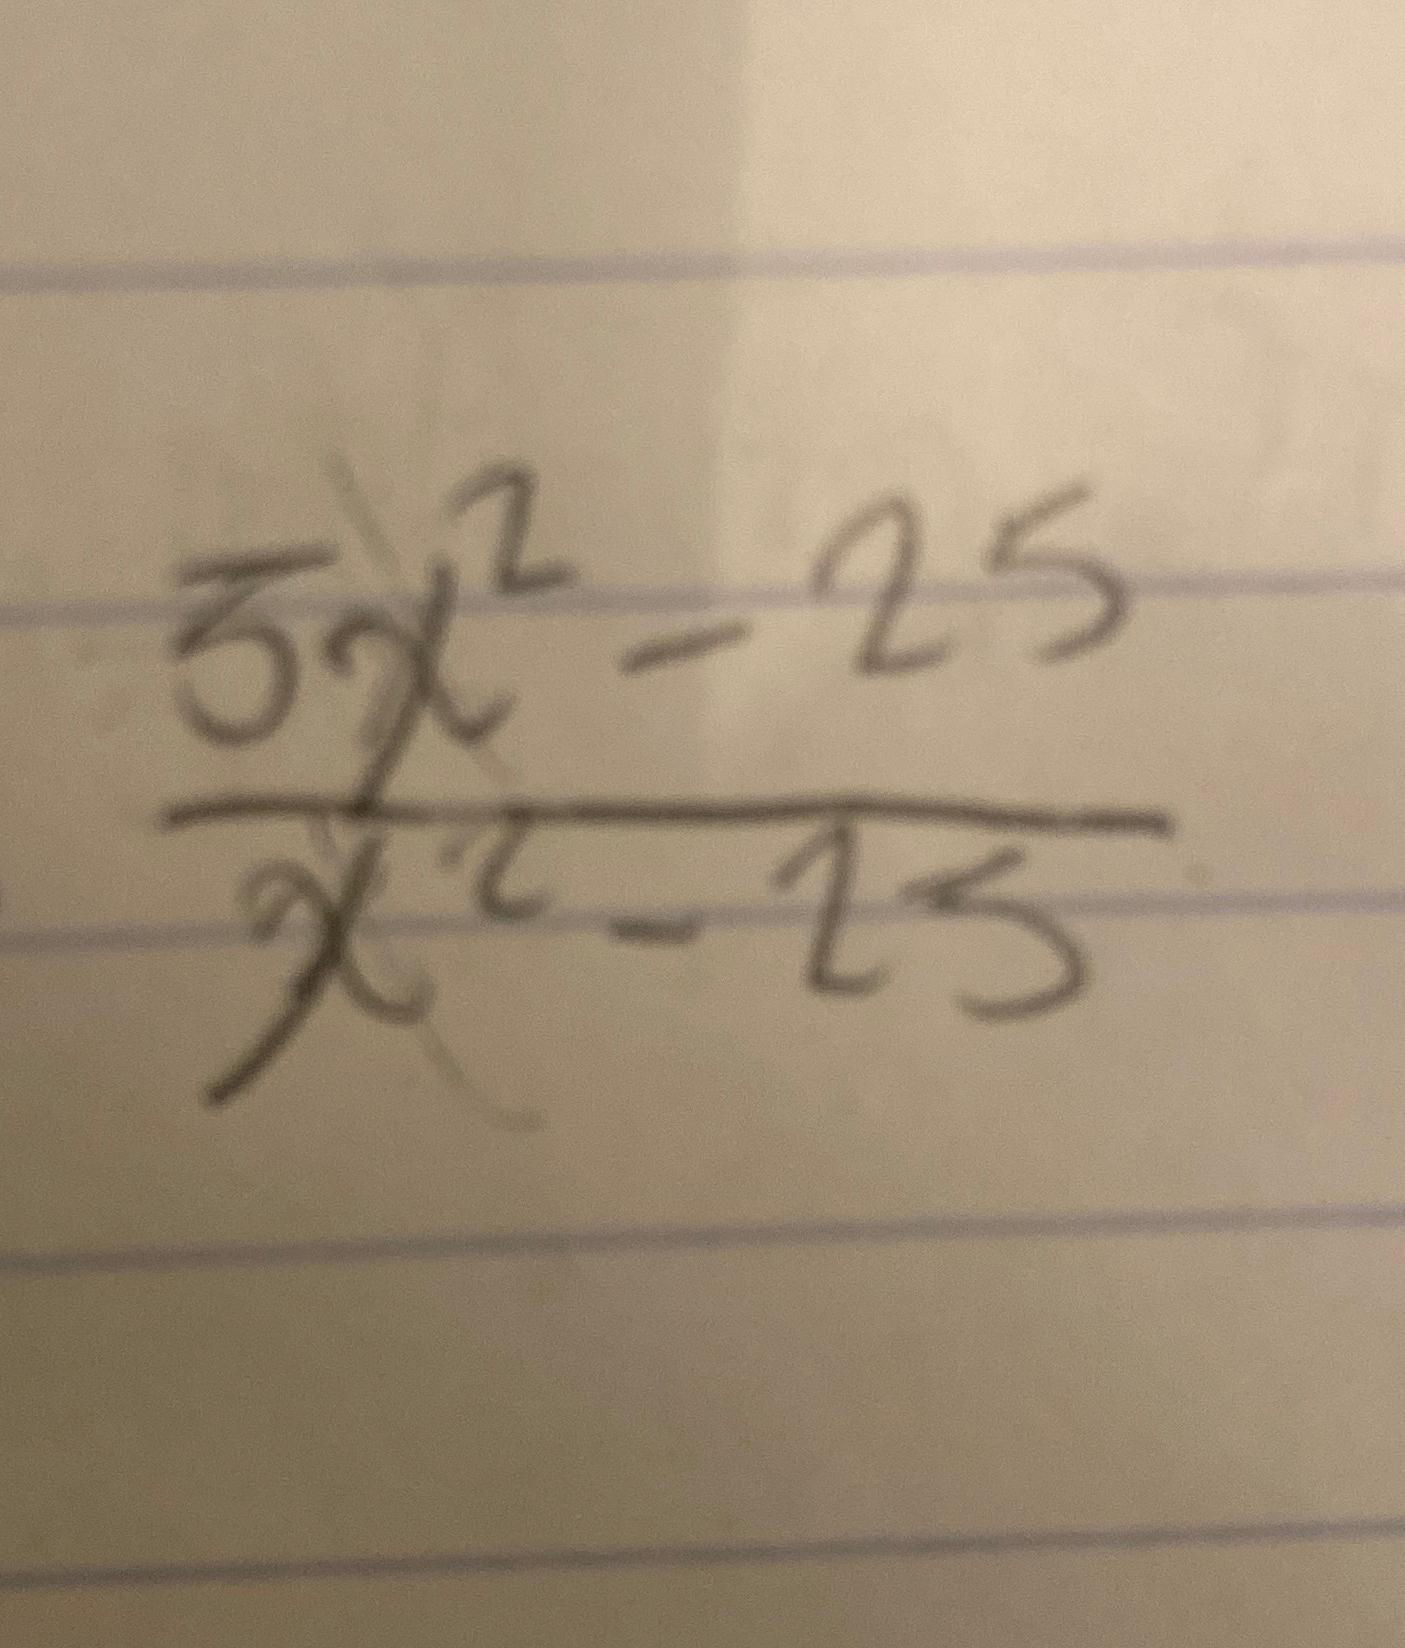 5x² - 25
x² - 25